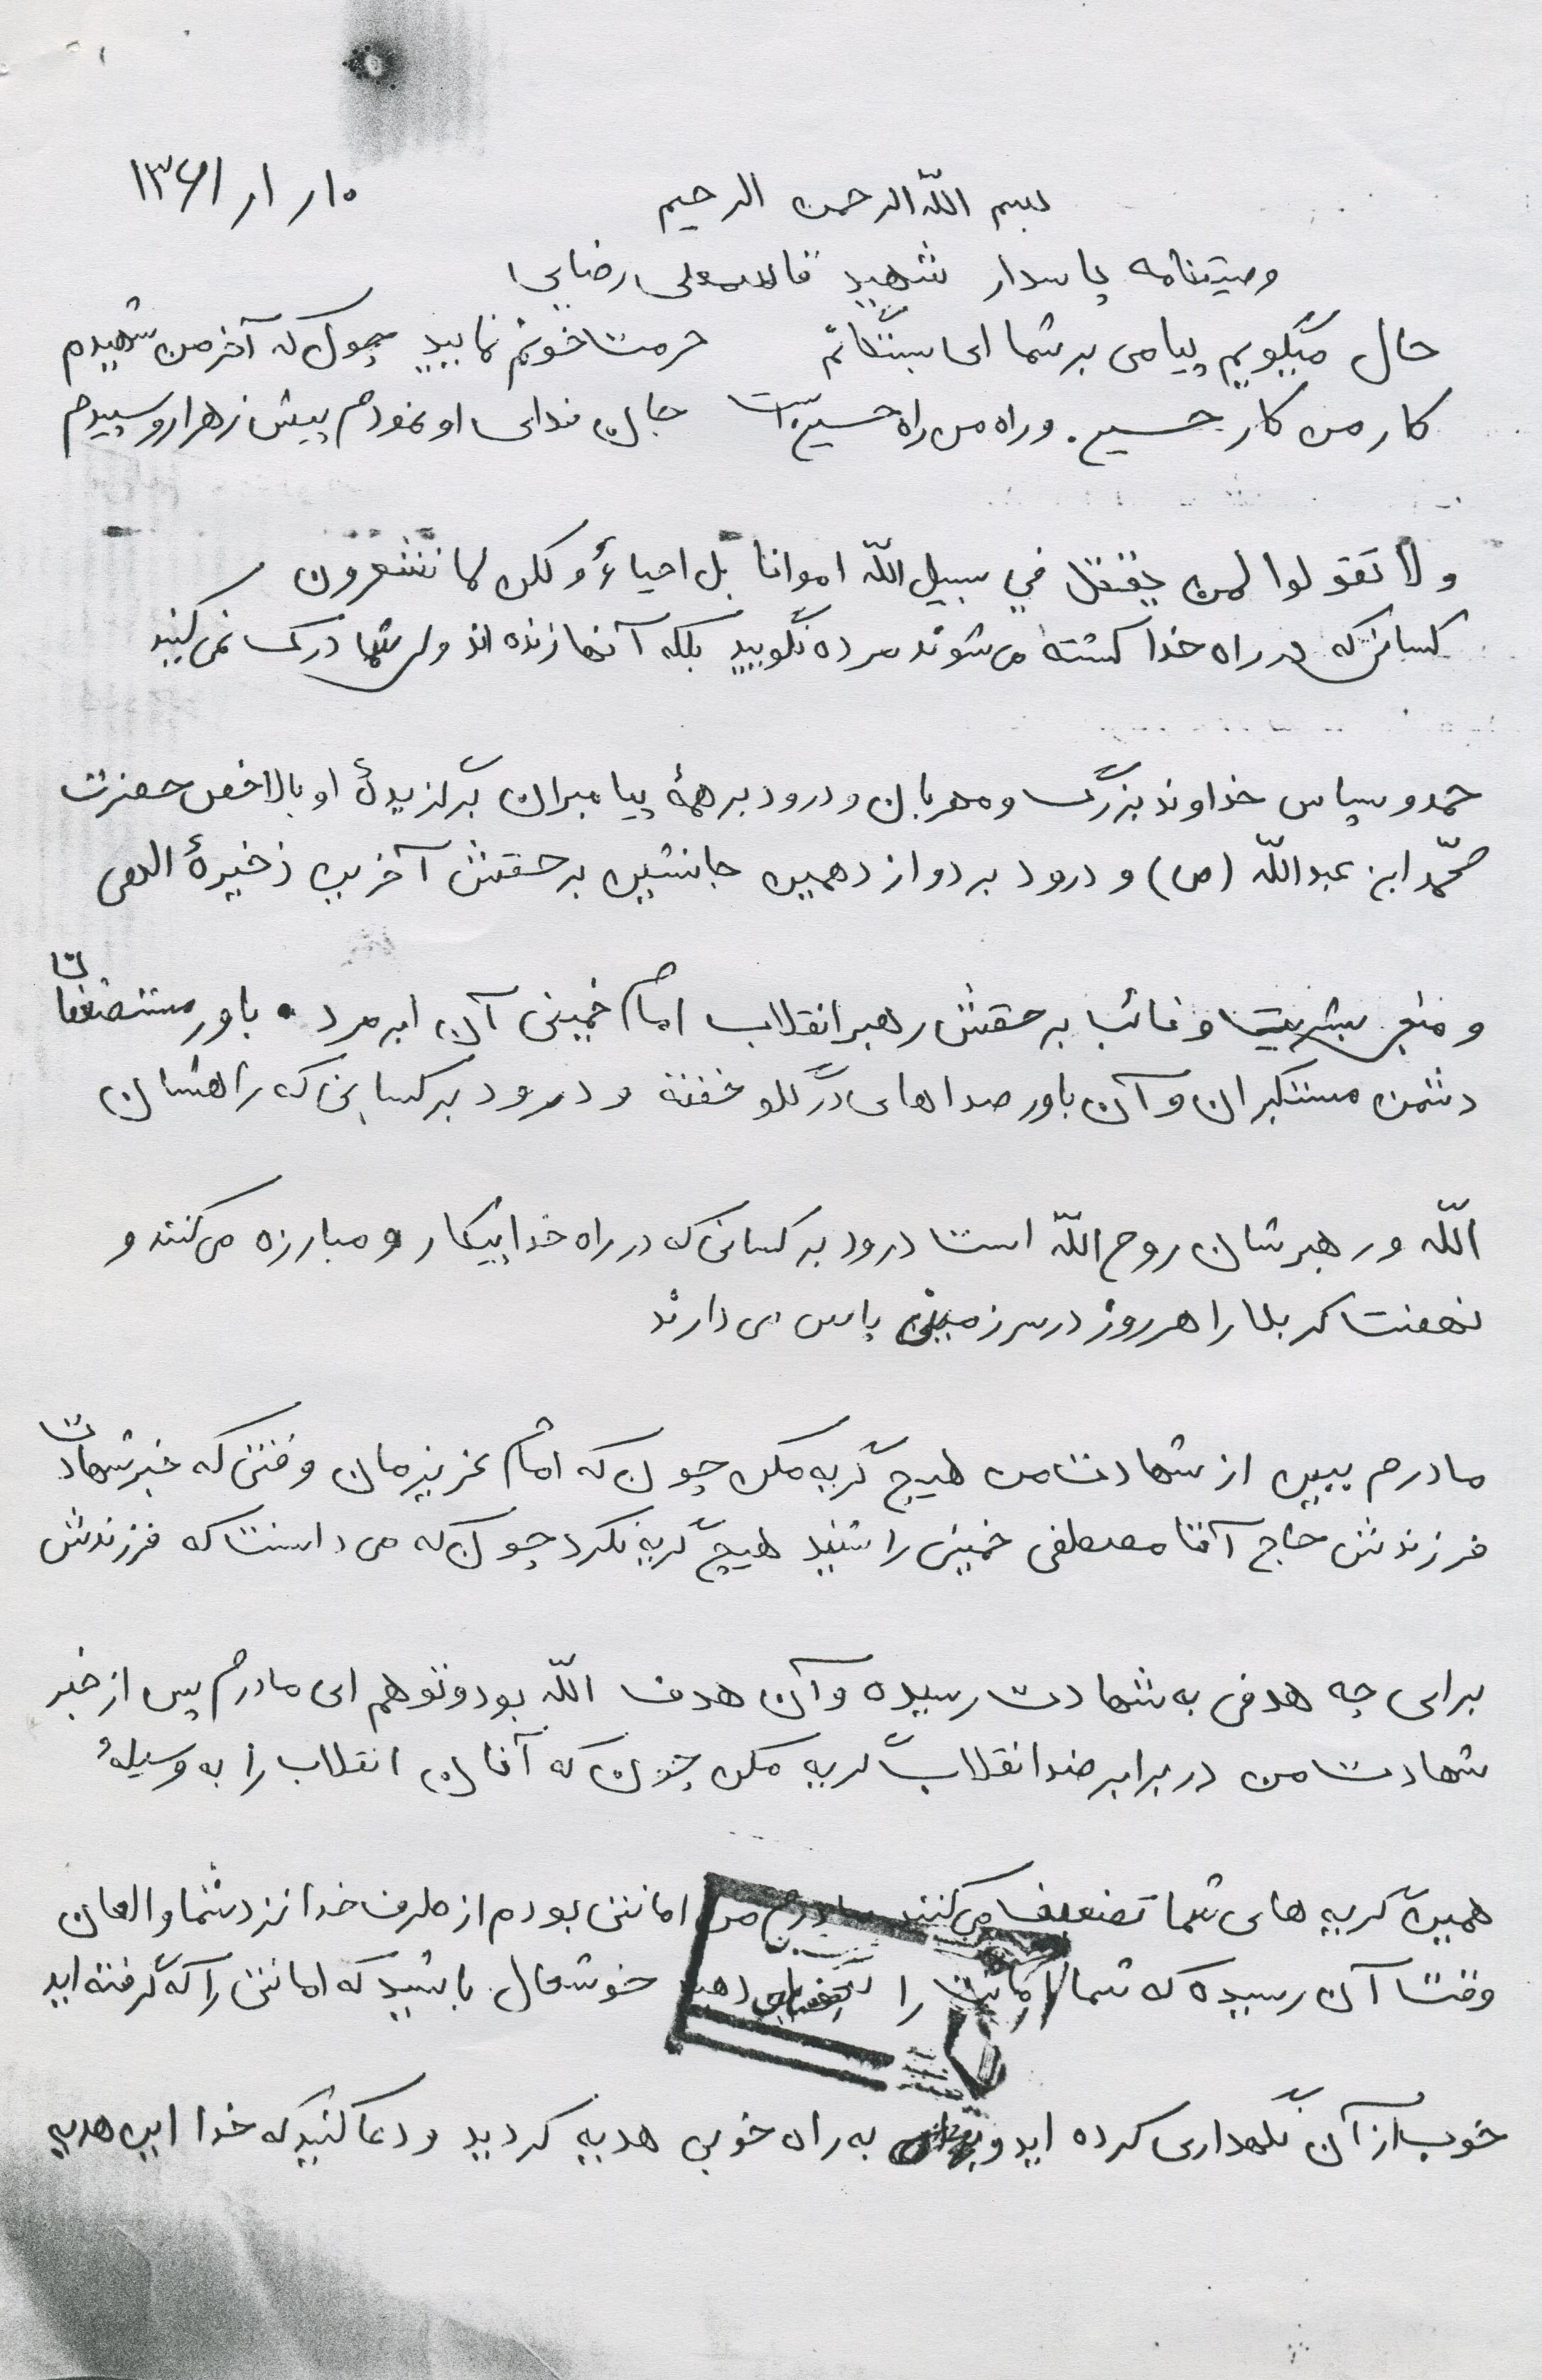 ۱۳۶۱/۱/۱۰
بسم اللّه الرحمن الرحیم
وصیتنامه پاسدار شهید رضایی
حال میگویم پیامی بر شما ای بستگانم حرمت خونم نمایید چون که آخر من شهیدم
کار من کار حسین. و راه من راه حسین است جان فدای او نمودم پیش زهرا رو سپیدم
ولا تقولوا لمن یقتل في سبیل اللّه امواتا بل احیاءٌ و لکن لا تشعرون
کسانی که در راه خدا کشته می شوند مرده نگویید بلکه آنها زنده اند ولی شما درک نمی کنید
حمد و سپاس خداوند بزرگ و مهربان و درود بر همهٔ پیامبران برگزیدهٔ او بالاخص حضرت
محمّد ابن عبداللّه (ص) و درود بر دوازدهمین جانشین بر حقش آخرین ذخیرهٔ الهی
و منجی بشریت و نائب بر حقش رهبر انقلاب امام خمینی آن ابر مرد. یاور مستضعفان
دشمن مستکبران و آن یاور صداهای در گلو خفته و درود بر کسانی که راهشان
اللّه و رهبرشان روح اللّه است درود بر کسانی که در راه خدا پیکار و مبارزه می کنند و
نهضت کربلا را هر روز در سرزمین پاس می دارند
مادرم ببین از شهادت من هیچ گریه مکن چون که امام عزیزمان وقتی که خبر شهادت
فرزندش حاج آقا مصطفی خمینی را شنید هیچ گریه نکرد چون که می دانست که فرزندش
برای چه هدفی به شهادت رسیده و آن هدف اللّه بود و تو هم ای مادرم پس از خبر
شهادت من در برابر ضد انقلاب گریه مکن چون که آنان انقلاب را به وسیلهٔ
همین گریه های شما تضعیف می کنند مادرم من امانتی بودم از طرف خدا نزد شما و الان
وقت آن رسیده که شما امانت را دهید خوشحال باشید که امانتی را که گرفته اید
خوب از آن نگهداری کرده اید و به راه خوبی هدیه کردید و دعا کنید که خدا این هدیه